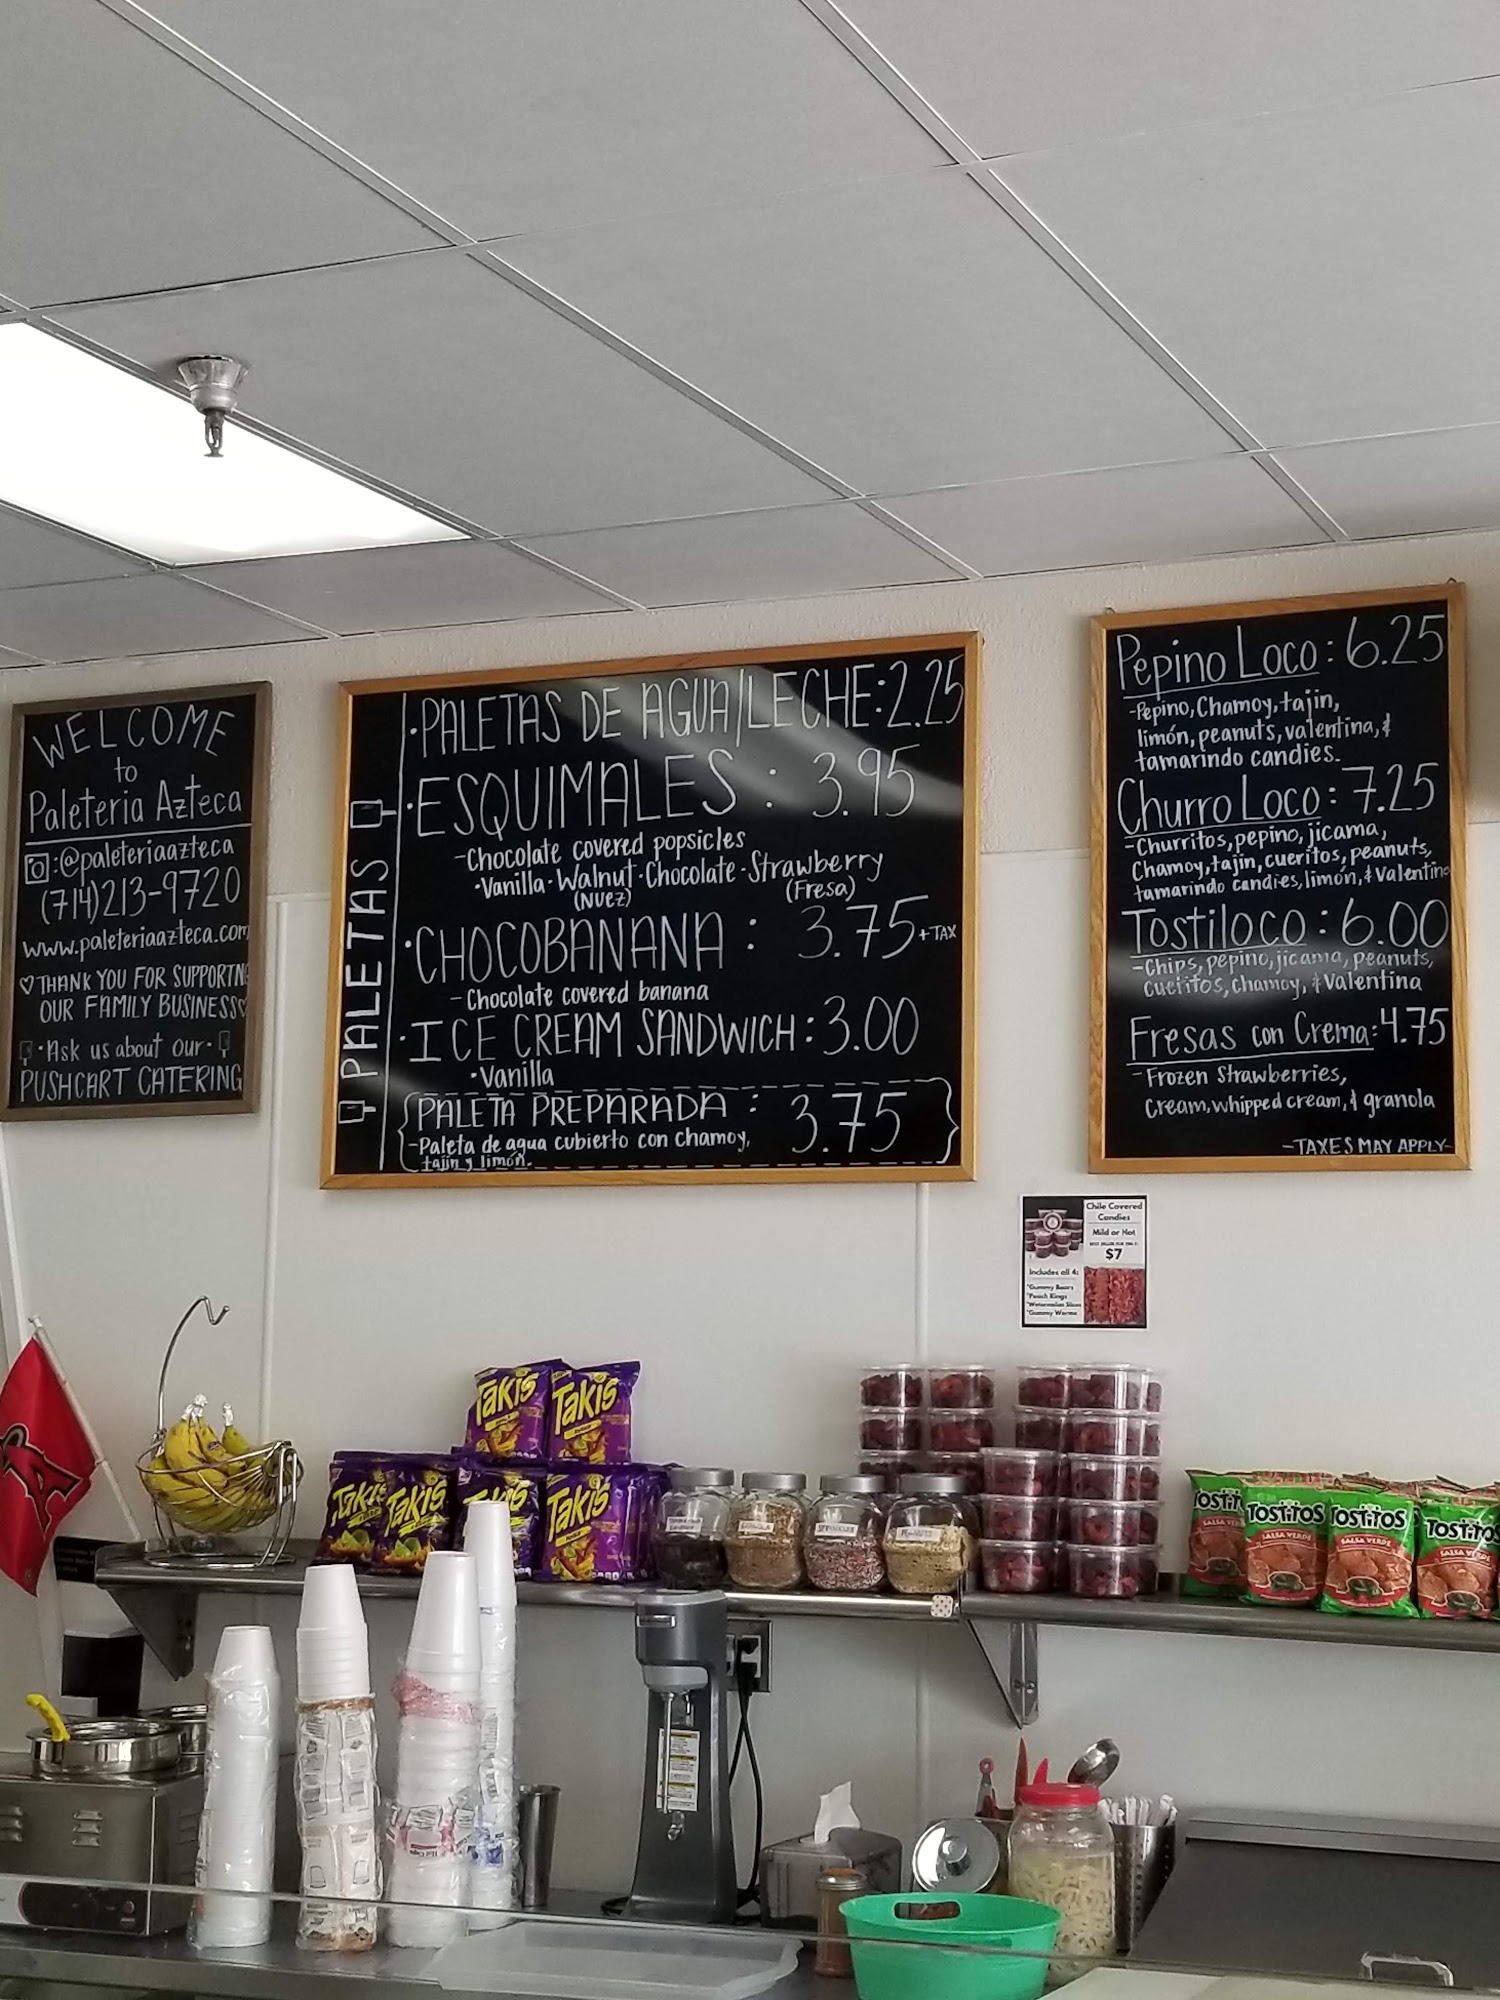 WELCOME
to
Paleteria Azteca
:@paleteriaazteca
(714)213-9720
www.paleteriaazteca.com
♡THANK YOU FOR SUPPORTNG
OUR FAMILY BUSINESS♡
·Ask us about our·
PUSHCART CATERING
PALETAS
·PALETAS DE AGUA/LECHE:2.25
·ESQUIMALES : 3.95
-Chocolate covered popsicles
·Vanilla·Walnut·Chocolate·Strawberry
(NUEZ) (Fresa)
·CHOCOBANANA : 3.75+TAX
-Chocolate covered banana
·ICE CREAM SANDWICH:3.00
·Vanilla
PALETA PREPARADA : 3.75
-Paleta de agua cubierto con chamoy,
tajin y limón.
Pepino Loco:6.25
-Pepino, Chamoy, tajin,
limón, peanuts, valentina, &
tamarindo candies.
Churro Loco:7.25
-Churritos, pepino, jicama,
Chamoy, tajin, cueritos, peanuts,
tamarindo candies, limón, & Valentina
Tostiloco:6.00
-Chips, pepino, jicama, peanuts,
cueritos, chamoy, & Valentina
Fresas con Crema:4.75
-Frozen Strawberries,
Cream, whipped cream, & granola
-TAXES MAY APPLY-
Chile Covered
Candies
Mild or Hot
$7
Includes all 4:
*Gummy Bears
*Peach Rings
*Watermelon Slices
*Gummy Worms
Takis
Takis
Takis
Takis
Takis
Takis
A
GRANOLA
SPRINKLES
PEANUTS
TOSTITOS
SALSA VERDE
TOSTITOS
SALSA VERDE
TOSTITOS
SALSA VERDE
TOSTITOS
SALSA VERDE